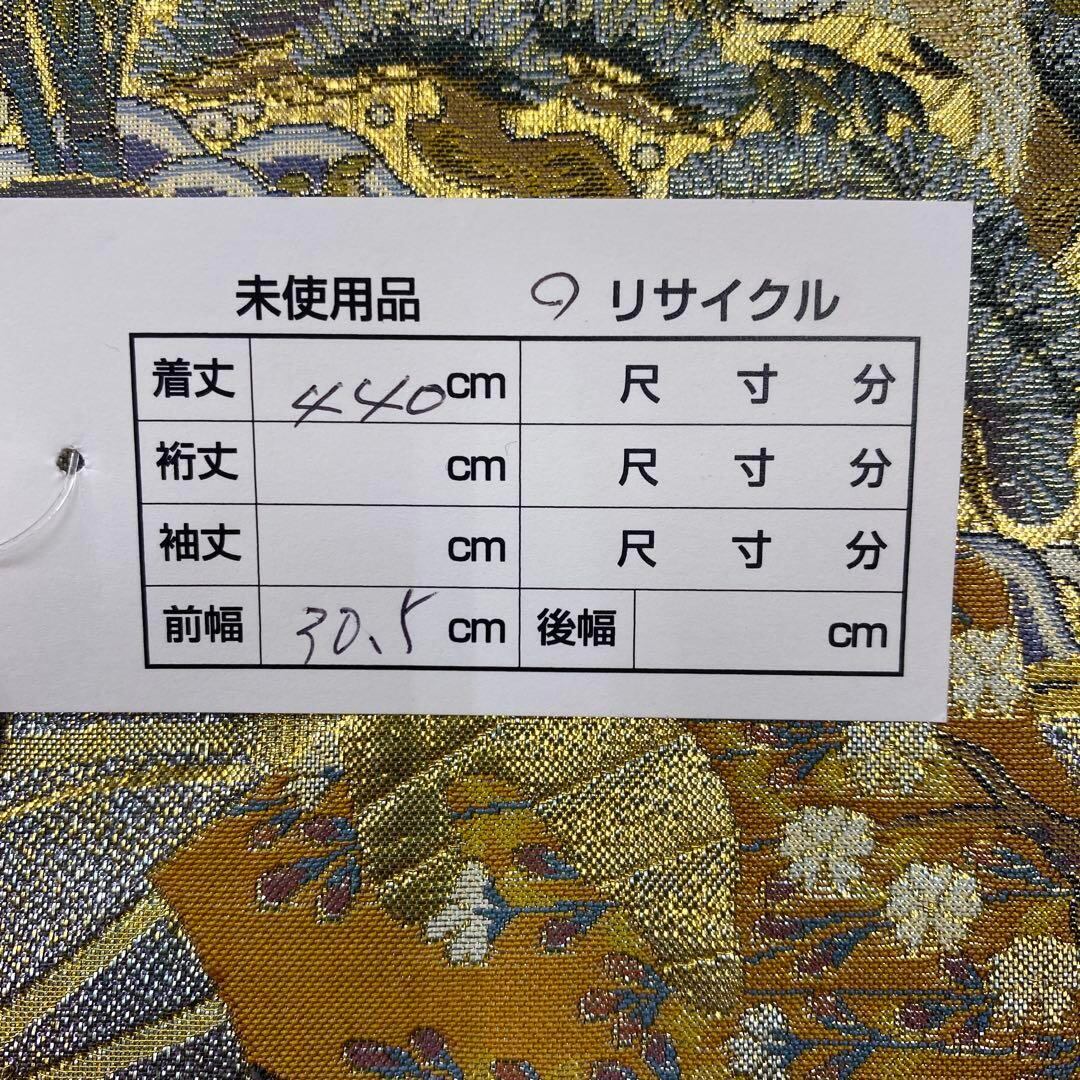 未使用品 リサイクル
着丈 440cm 尺 寸 分
裄丈 cm 尺 寸 分
袖丈 cm 尺 寸 分
前幅 30.5 cm 後幅 cm